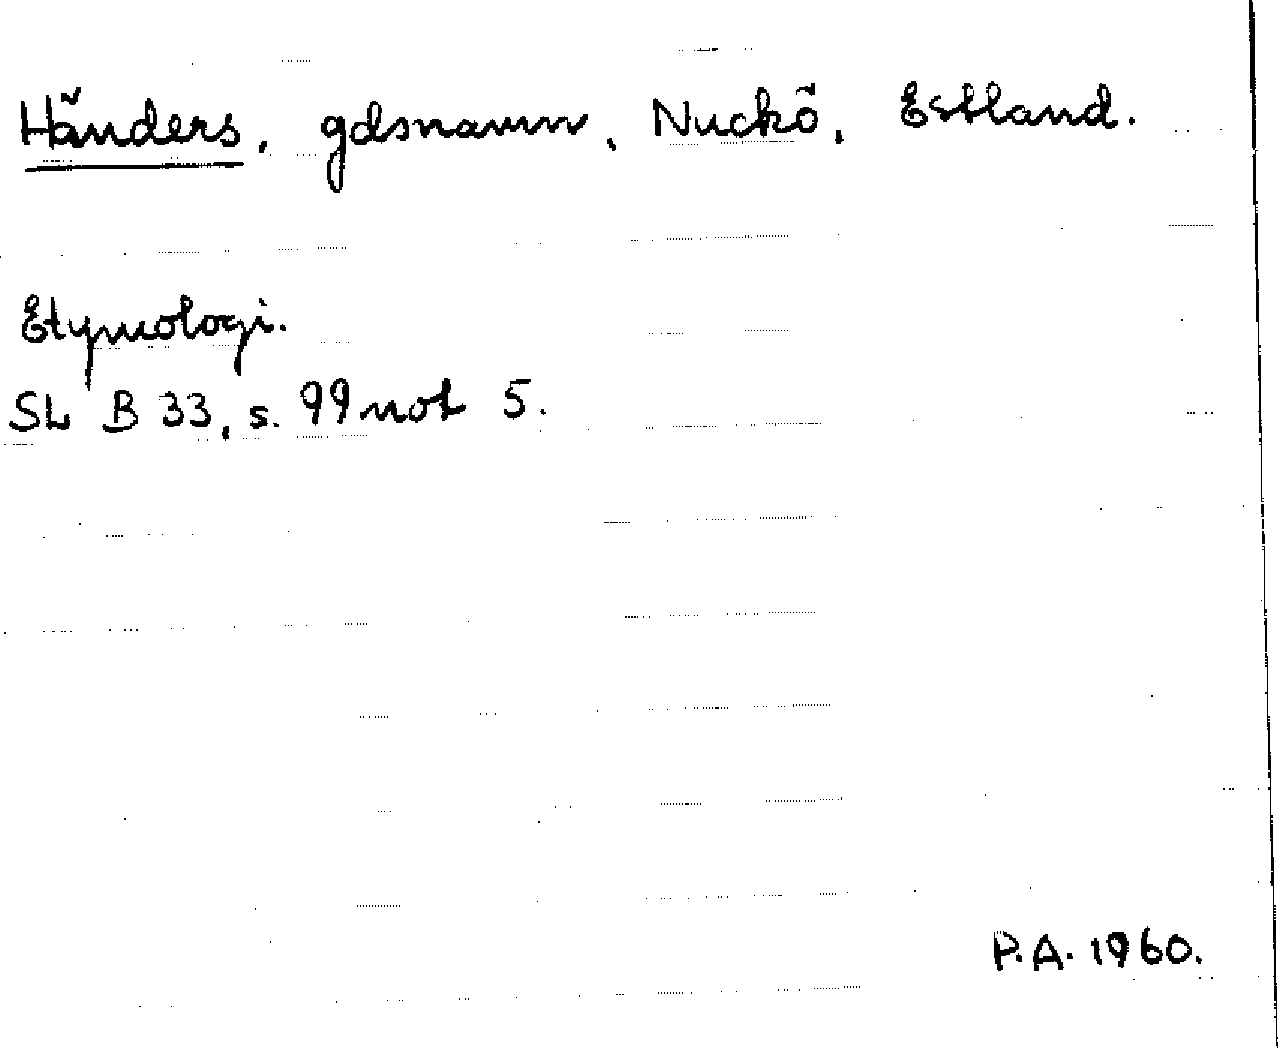 Händers, gdsnamn, Nuckö, Estland.
Etymologi.
SL B 33, s. 99 not 5.
P.A. 1960.